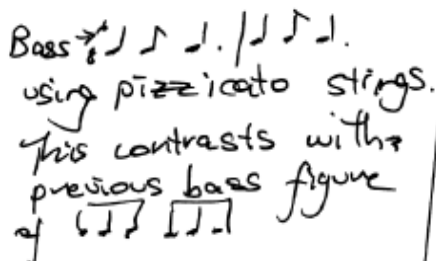 Bass 𝅘𝅥 𝅘𝅥𝅮 𝅘𝅥. | 𝅘𝅥 𝅘𝅥𝅮 𝅘𝅥.
using pizzicato stings.
This contrasts with
previous bass figure
of